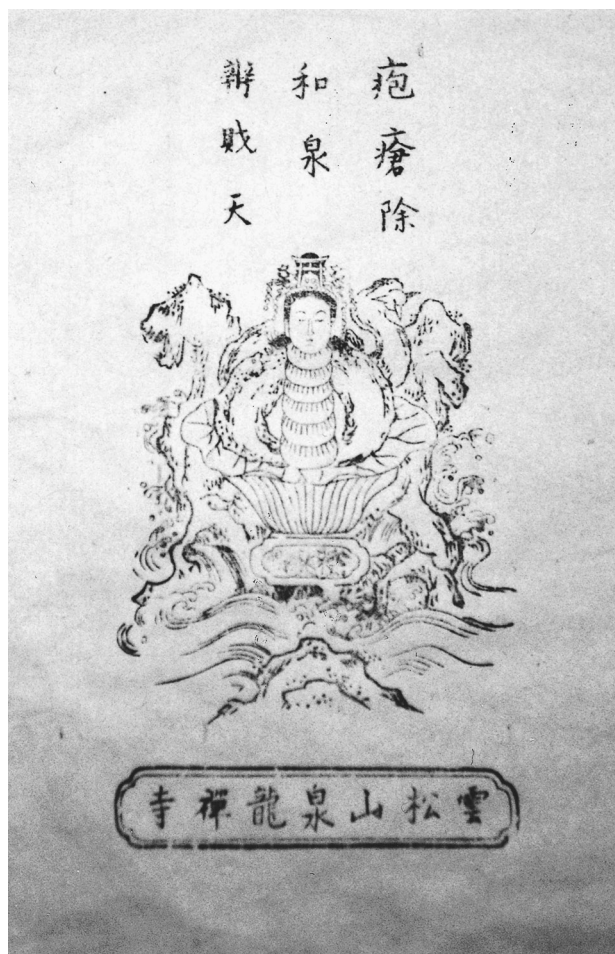 疱瘡除
和泉
辨戝天
雲松山泉龍禪寺